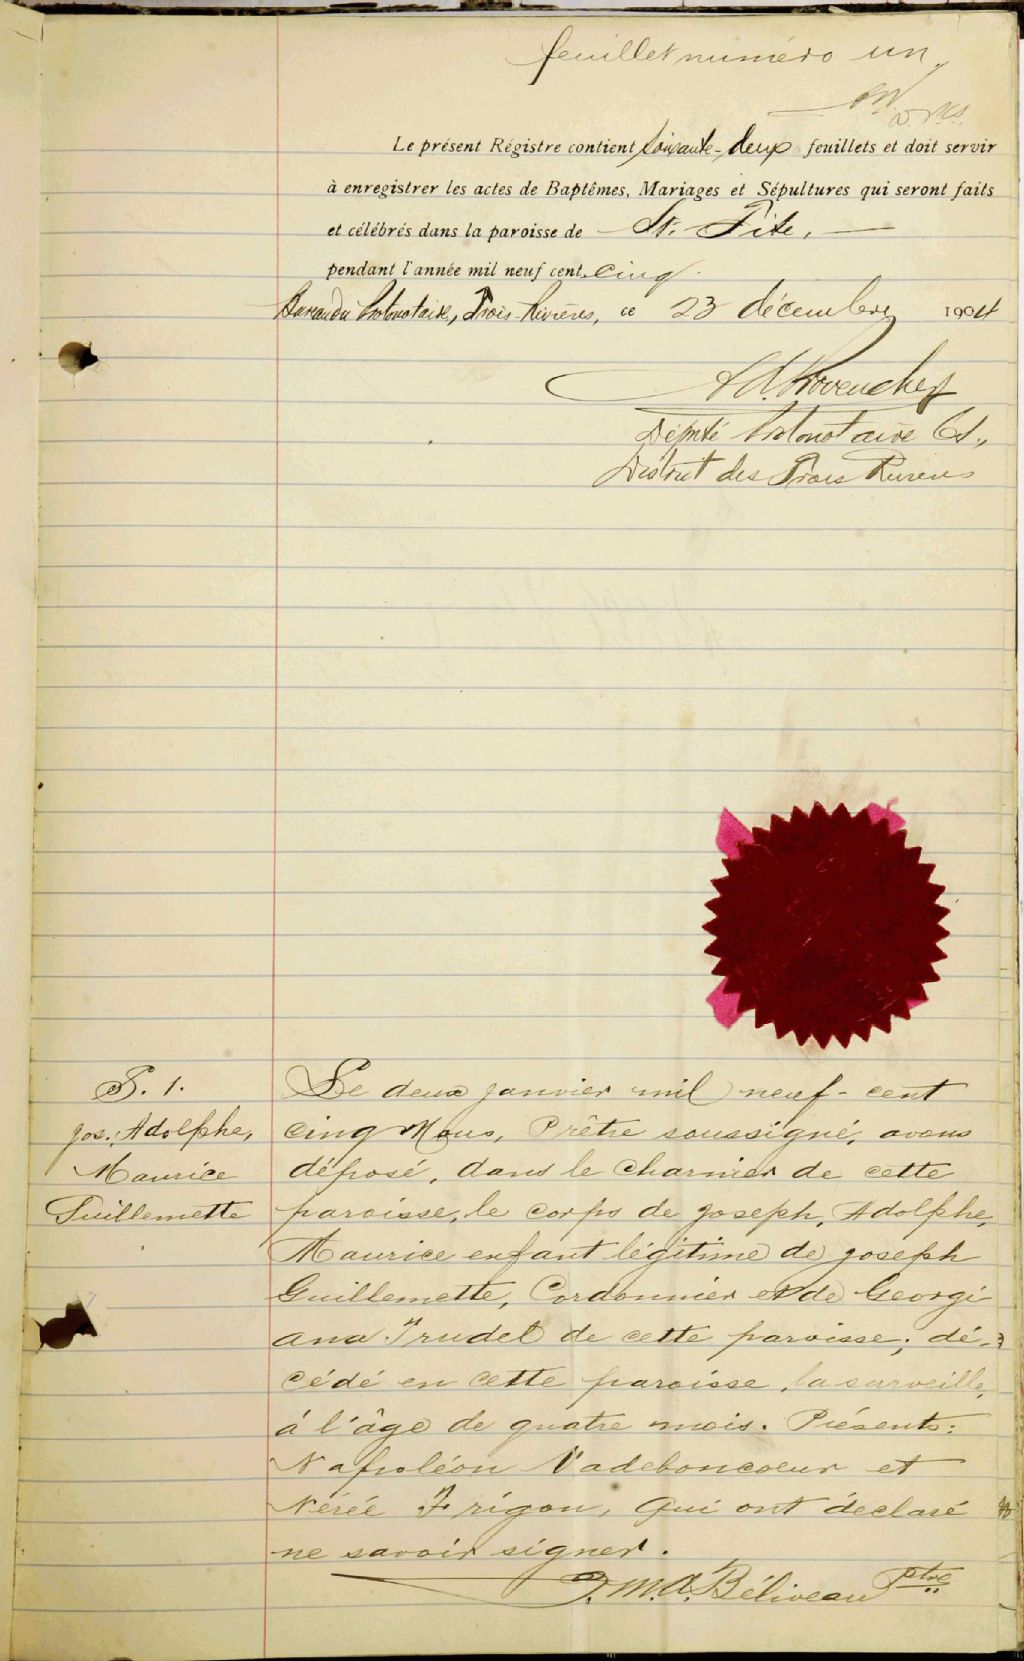 feuillet numéro un.
Le présent Régistre contient soixante-deux feuillets et doit servir
à enregistrer les actes de Baptêmes, Mariages et Sépultures qui seront faits
et célébrés dans la paroisse de St. Tite,
pendant l'année mil neuf cent cinq.
Bureau du Protonotaire, Trois-Rivières, ce 23 décembre 1904
Ad. Provencher
Député Protonotaire C.S.,
District des Trois Rivieres
S. 1.
Jos., Adolphe,
Maurice
Guillemette
Le deux janvier mil neuf-cent
cinq Nous, Prêtre soussigné, avons
déposé, dans le Charnier de cette
paroisse, le corps de Joseph, Adolphe,
Maurice enfant légitime de Joseph
Guillemette, Cordonnier et de Georgi
ana Trudel de cette paroisse; dé-
cédé en cette paroisse, la surveille,
à l'âge de quatre mois. Présents:
Napoléon Vadeboncoeur et
Nérée Frigon, qui ont déclaré
ne savoir signer.
J.M.A. Béliveau Ptre